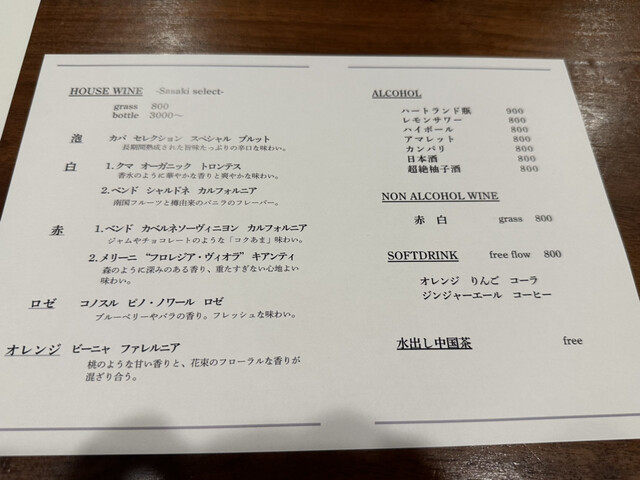 HOUSE WINE -Sasaki select-
grass 800
bottle 3000～
泡 カバ セレクション スペシャル ブルット
長期間熟成された旨味たっぷりの辛口な味わい。
白 1.クマ オーガニック トロンテス
香水のように華やかな香りと爽やかな味わい。
2.ベンド シャルドネ カルフォルニア
南国フルーツと樽由来のバニラのフレーバー。
赤 1.ベンド カベルネソーヴィニヨン カルフォルニア
ジャムやチョコレートのような「コクあま」味わい。
2.メリーニ “フロレジア・ヴィオラ” キアンティ
森のように深みのある香り、重たすぎない心地よい
味わい。
ロゼ コノスル ピノ・ノワール ロゼ
ブルーベリーやバラの香り。フレッシュな味わい。
オレンジ ビーニャ ファレルニア
桃のような甘い香りと、花束のフローラルな香りが
混ざり合う。
ALCOHOL
ハートランド瓶 900
レモンサワー 800
ハイボール 800
アマレット 800
カンパリ 800
日本酒 800
超絶柚子酒 800
NON ALCOHOL WINE
赤 白 grass 800
SOFTDRINK free flow 800
オレンジ りんご コーラ
ジンジャーエール コーヒー
水出し中国茶 free